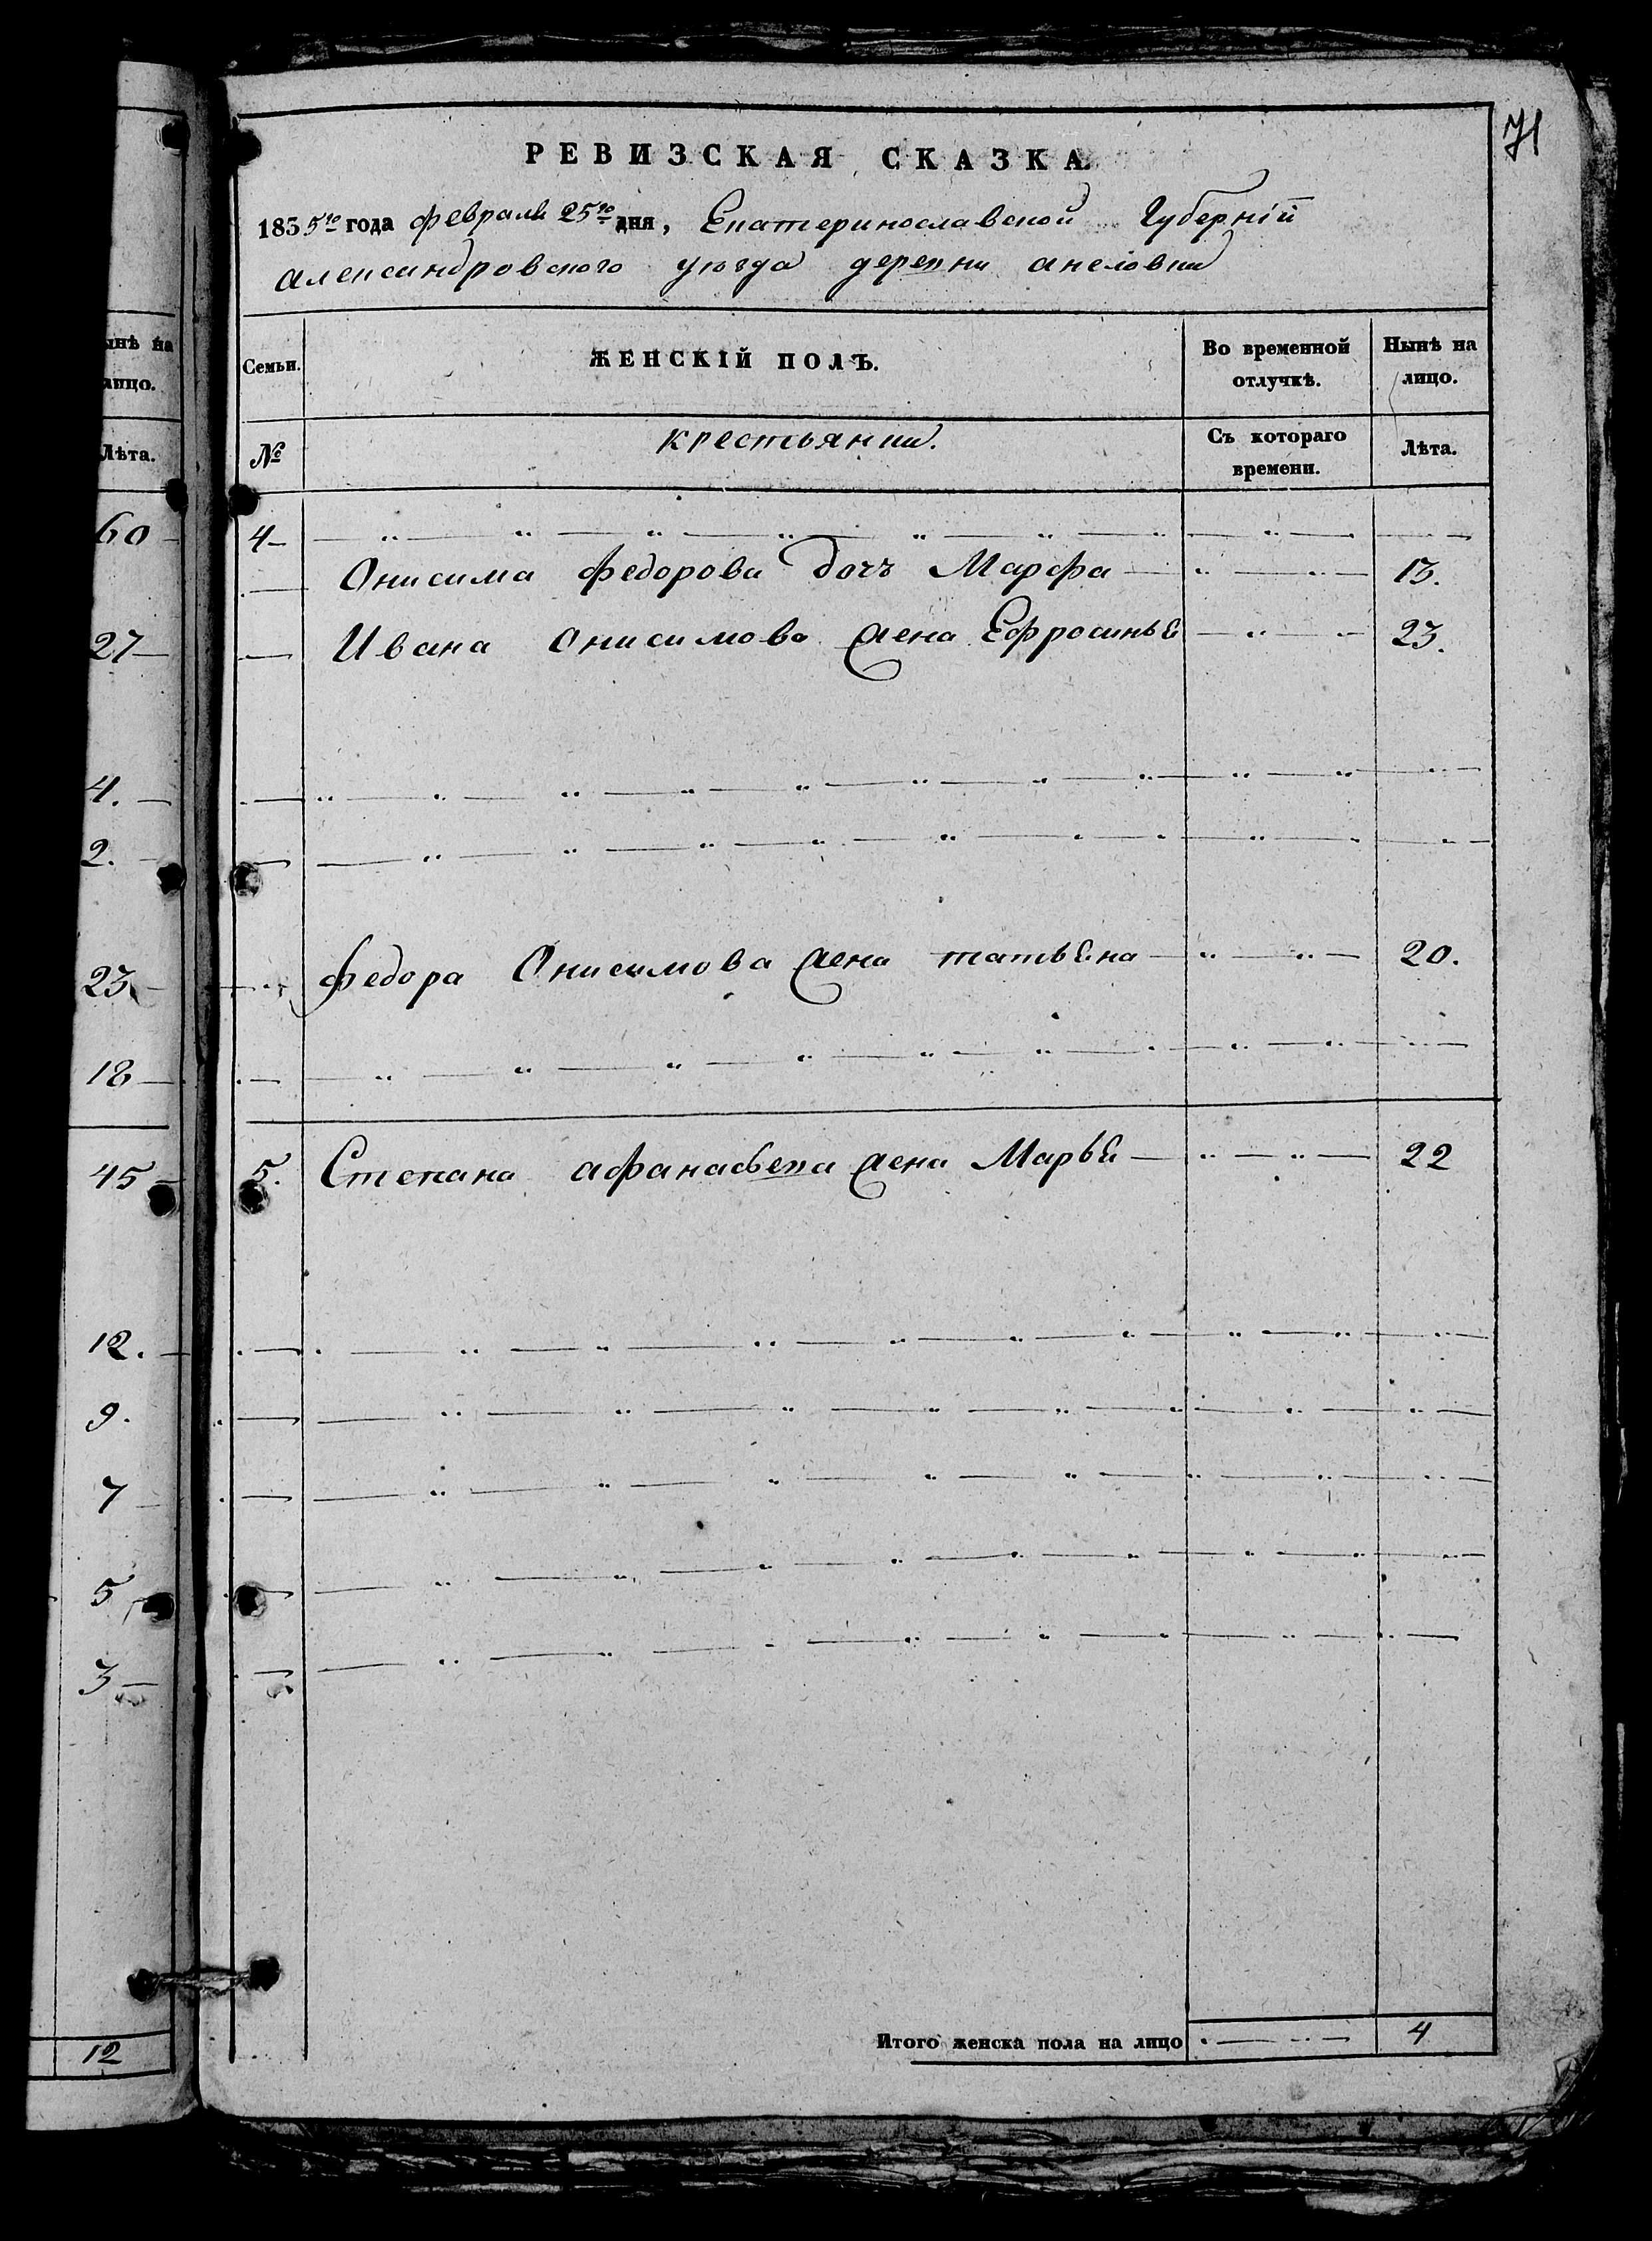 71
РЕВИЗСКАЯ СКАЗКА.
1835го года февраля 25го дня, Екатеринославской Губернiй
александровского уезда деревни
Семьи.
ЖЕНСКІЙ ПОЛЪ.
Во временной отлучкѣ.
Нынѣ на лицо.
№
крестьянии.
Съ котораго времени.
Лѣта.
4
Онисима федорова дочь Марфа 13.
Ивана Онисимова жена Ефросинья 23.
федора Онисимова жена татьяна 20.
5. Степана афанасьева жена Марья 22
Итого женска пола на лицо 4
ынѣ на
лицо.
Лѣта.
60
27
4.
2.
23
18
45
12.
9.
7
5
3
12